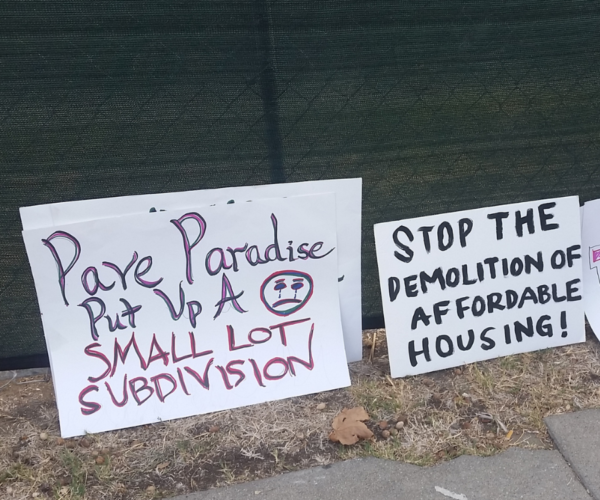 Pave Paradise
Put Up A
SMALL LOT
SUBDIVISION
STOP THE
DEMOLITION OF
AFFORDABLE
HOUSING!